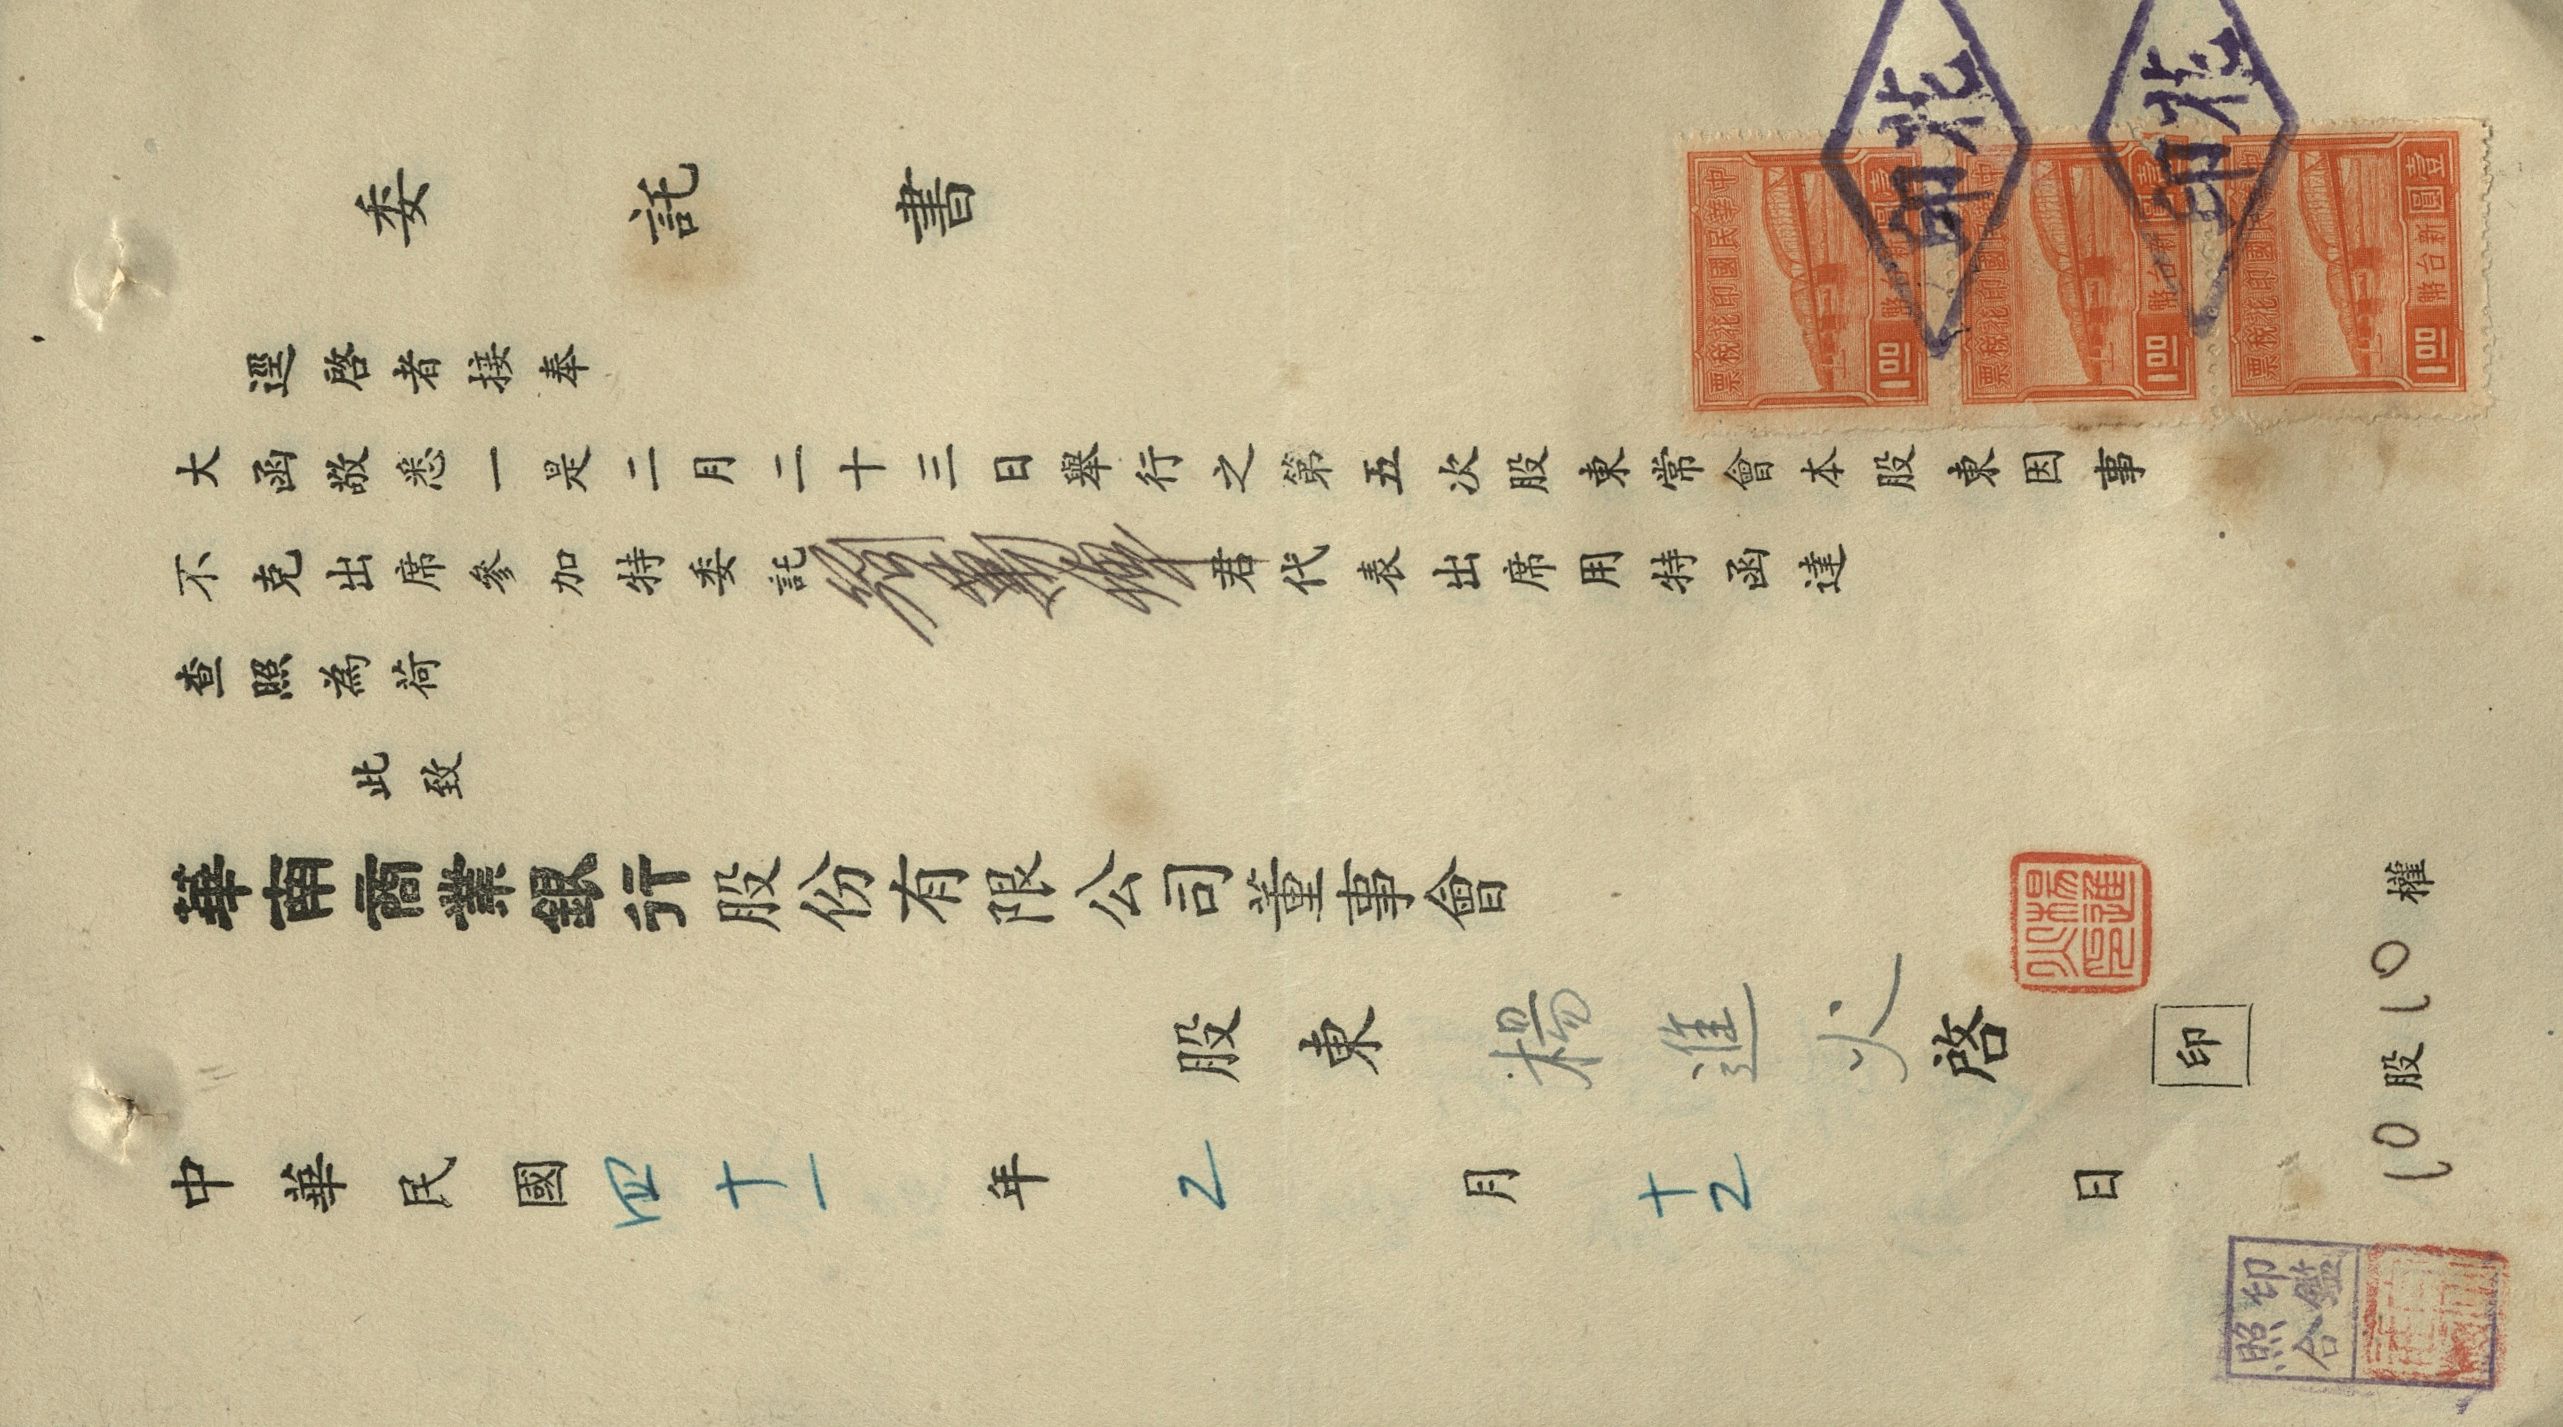 委託書
逕啓者接奉
大函敬悉一是二月二十三日舉行之第五次股東常會本股東因事
不克出席參加特委託
君代表出席用特函達
查照為荷
此致
華南商業銀行股份有限公司董事會
股東 楊進火 啓
印
楊進火印
中華民國四十一年2月十2日
10股10權
印鑑
照合
印花
印花
中華民國印花稅票
壹圓 新台幣 1.00
中華民國印花稅票
壹圓 新台幣 1.00
中華民國印花稅票
壹圓 新台幣 1.00